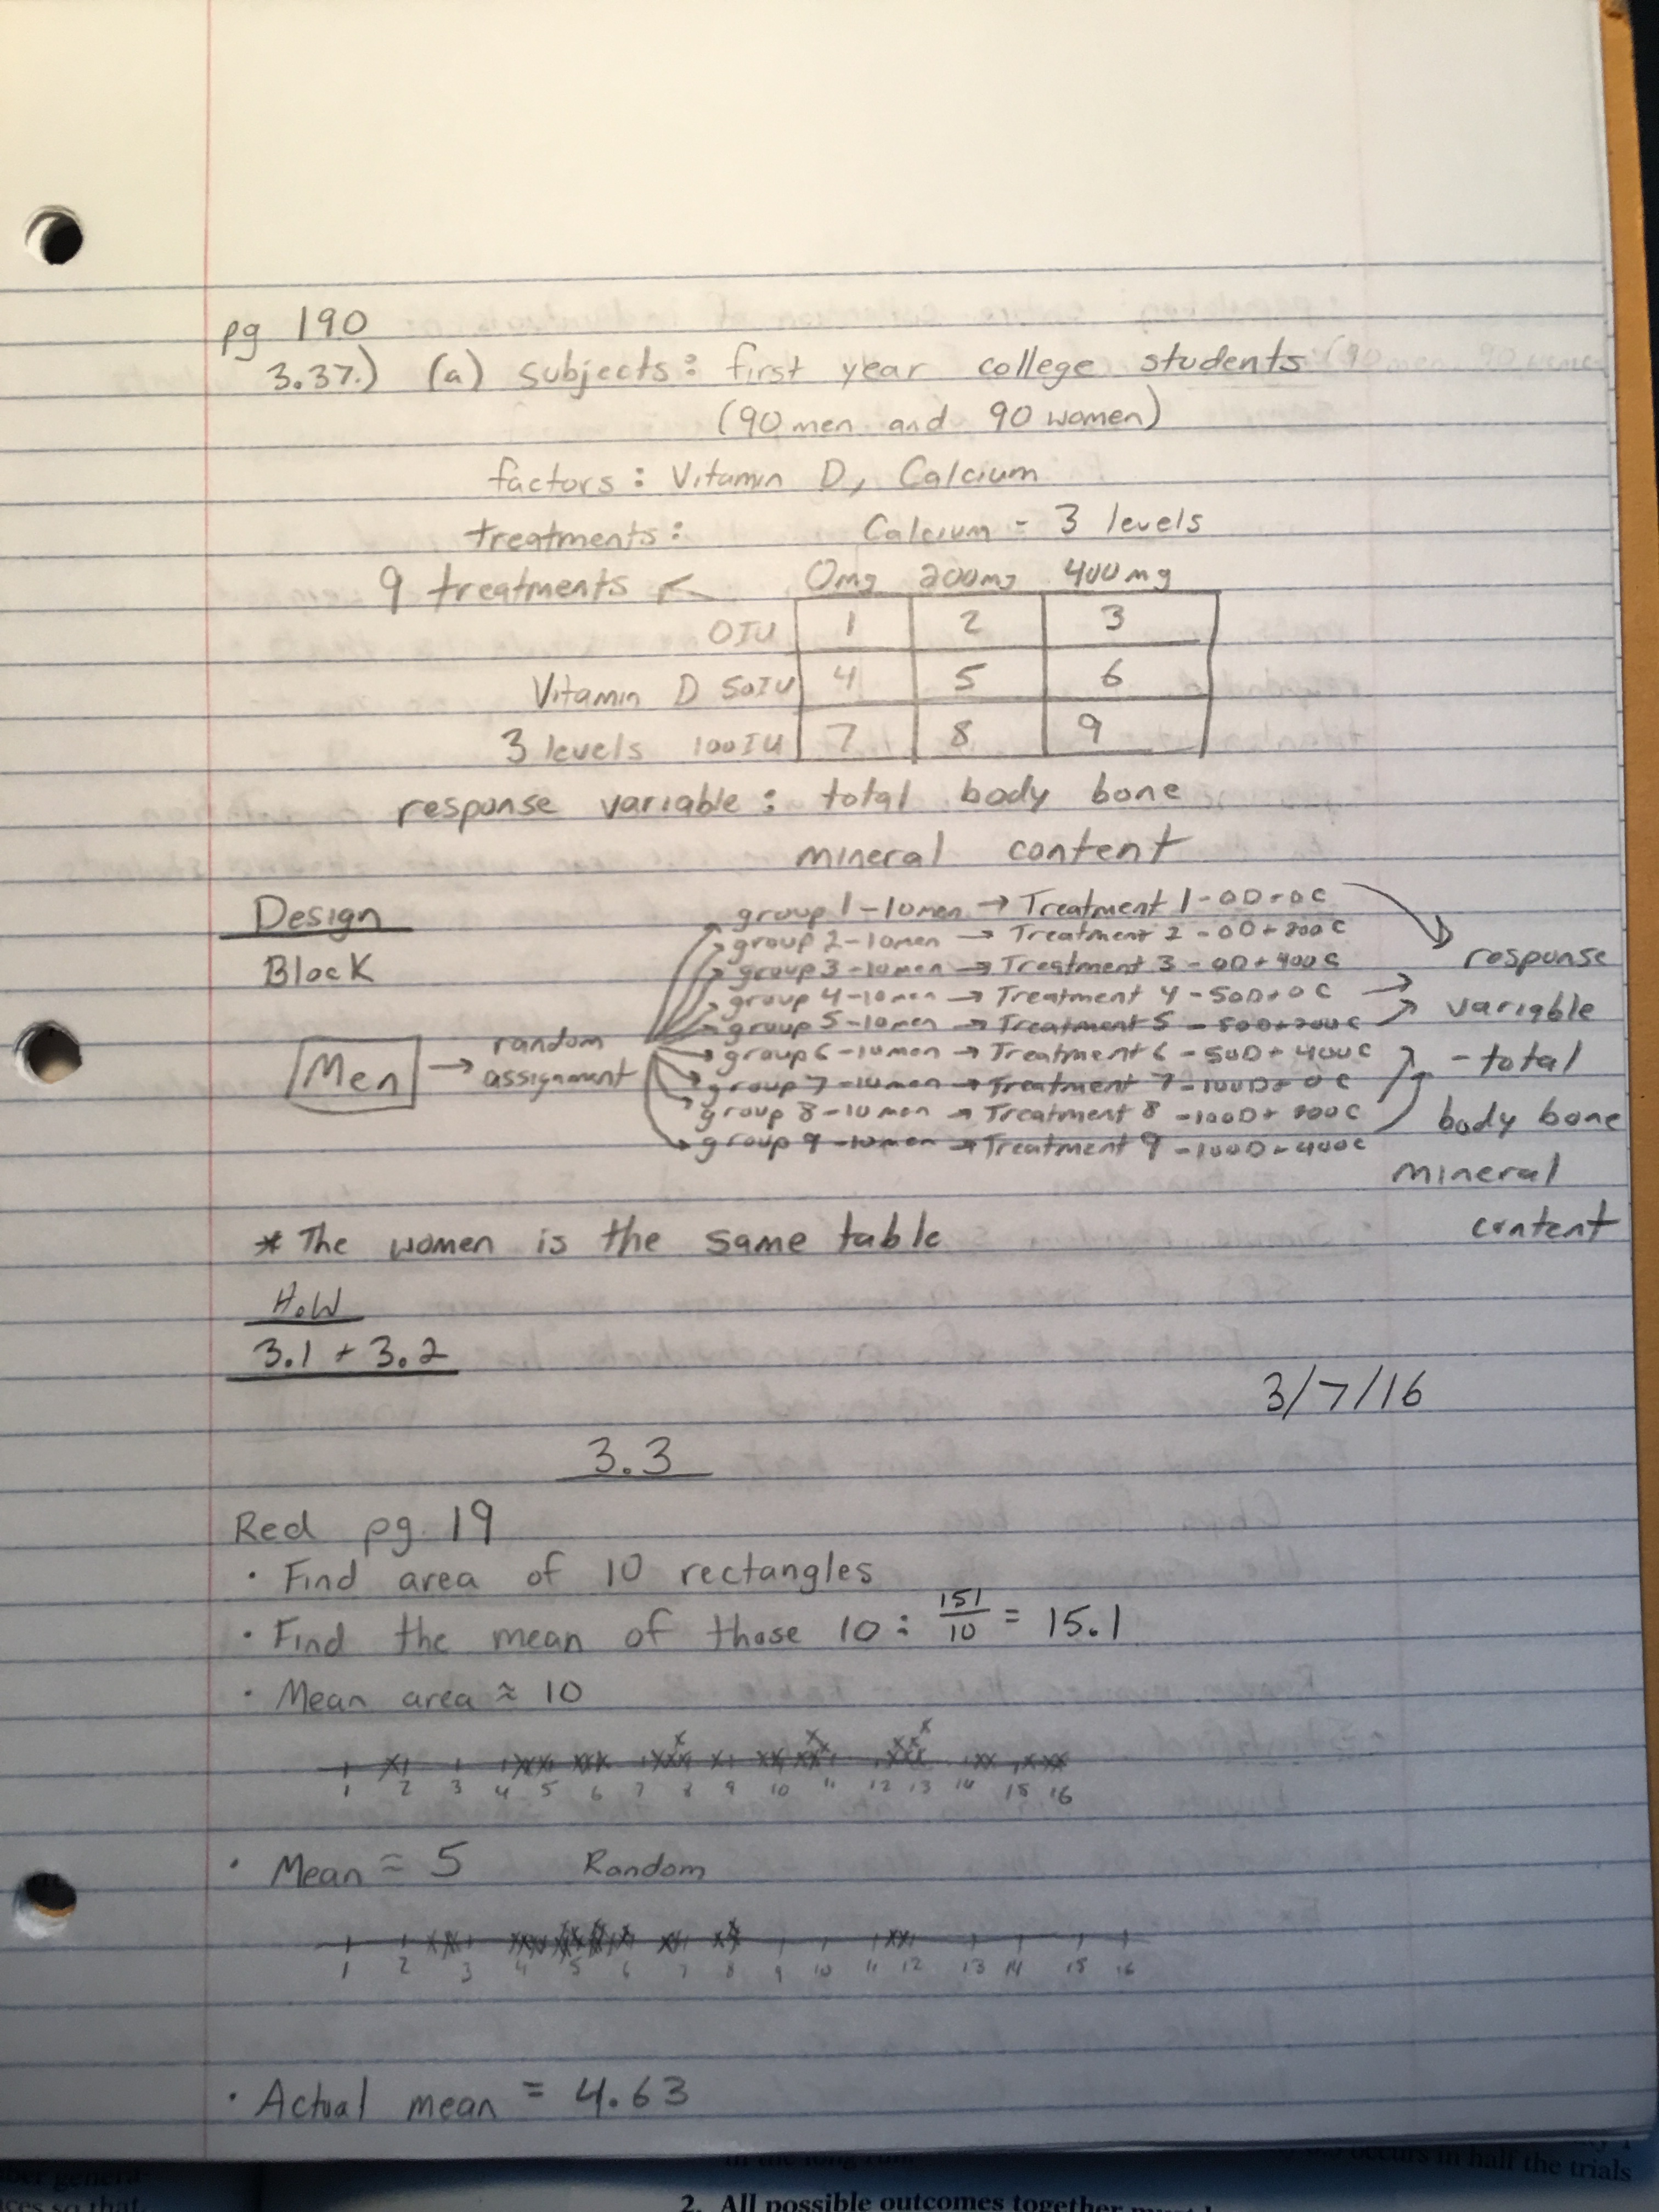 pg 190
3.37.) (a) subjects: first year college students
(90 men and 90 women)
factors: Vitamin D, Calcium
treatments: Calcium - 3 levels
9 treatments 0mg 200mg 400mg
0IU 1 2 3
Vitamin D 50IU 4 5 6
3 levels 100IU 7 8 9
response variable: total body bone
mineral content
Design
Block
Men → random assignment
group 1-10men → Treatment 1-0D+0C
group 2-10men → Treatment 2-0D+200C
group 3-10men → Treatment 3-0D+400C
group 4-10men → Treatment 4-50D+0C
group 5-10men → Treatment 5-50D+200C
group 6-10men → Treatment 6-50D+400C
group 7-10men → Treatment 7-100D+0C
group 8-10men → Treatment 8-100D+200C
group 9-10men → Treatment 9-100D+400C
response
variable
-total
body bone
mineral
content
* The women is the same table
H.W
3.1 + 3.2
3/7/16
3.3
Red pg. 19
· Find area of 10 rectangles
· Find the mean of those 10: 151/10 = 15.1
· Mean area ≈ 10
1 2 3 4 5 6 7 8 9 10 11 12 13 14 15 16
· Mean ≈ 5 Random
1 2 3 4 5 6 7 8 9 10 11 12 13 14 15 16
· Actual mean = 4.63
occurs in half the trials
2. All possible outcomes together must